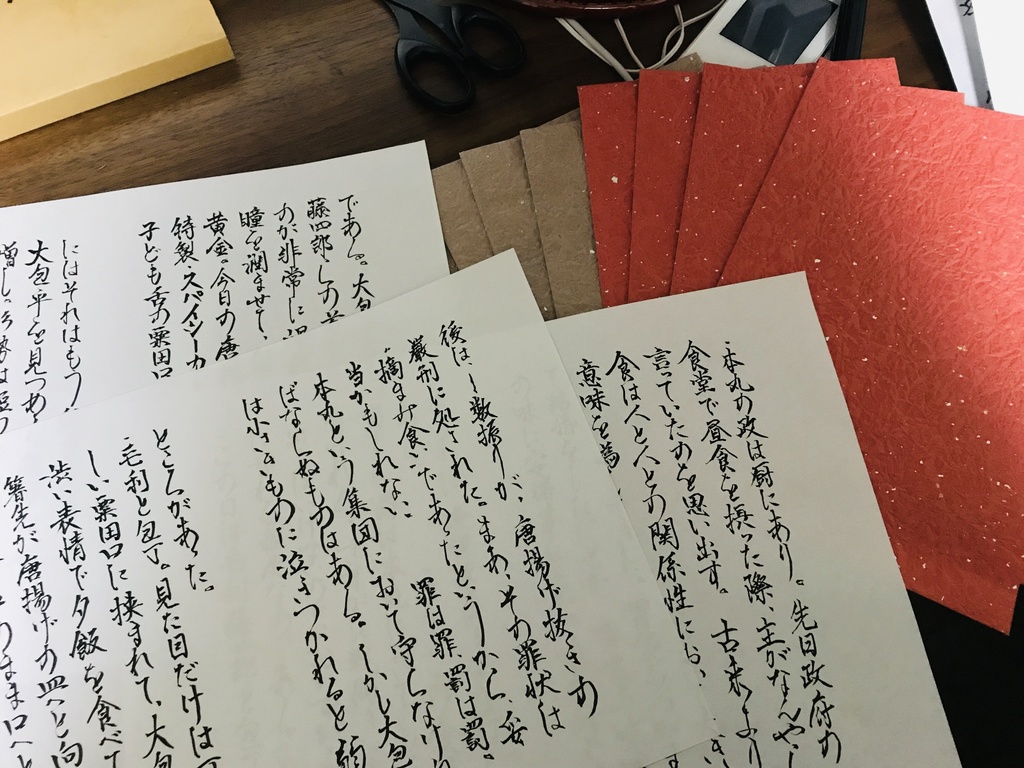 本丸の政は厨にあり。先日政府の
食堂で昼食を摂った際、主がなんやし
言っていたのを思い出す。古来より
食は人と人との関係性にお
意味を
後は、数振りが、唐揚げ抜きあ
厳刑に処された。まあ、その罪状は
摘まみ食いであったというから、妥
当かもしれない。罪は罪、罰は罰。
本丸という集団において守らなけ
ばならぬものはある。しかし大包
は小さいものに泣きつかれると弱
ところがあった。
毛利と包丁。見た目だけは
しい粟田口に挟まれて、大包
渋い表情で夕飯を食べて
箸先が唐揚げの皿へと向
のまま口へと
である。大包
藤四郎。しの
のが非常に
瞳を潤ませて、
黄金。今日の唐
特製、スパイシーカ
子ども舌の粟田口
にはそれはもう
大包平を見つめ
増し